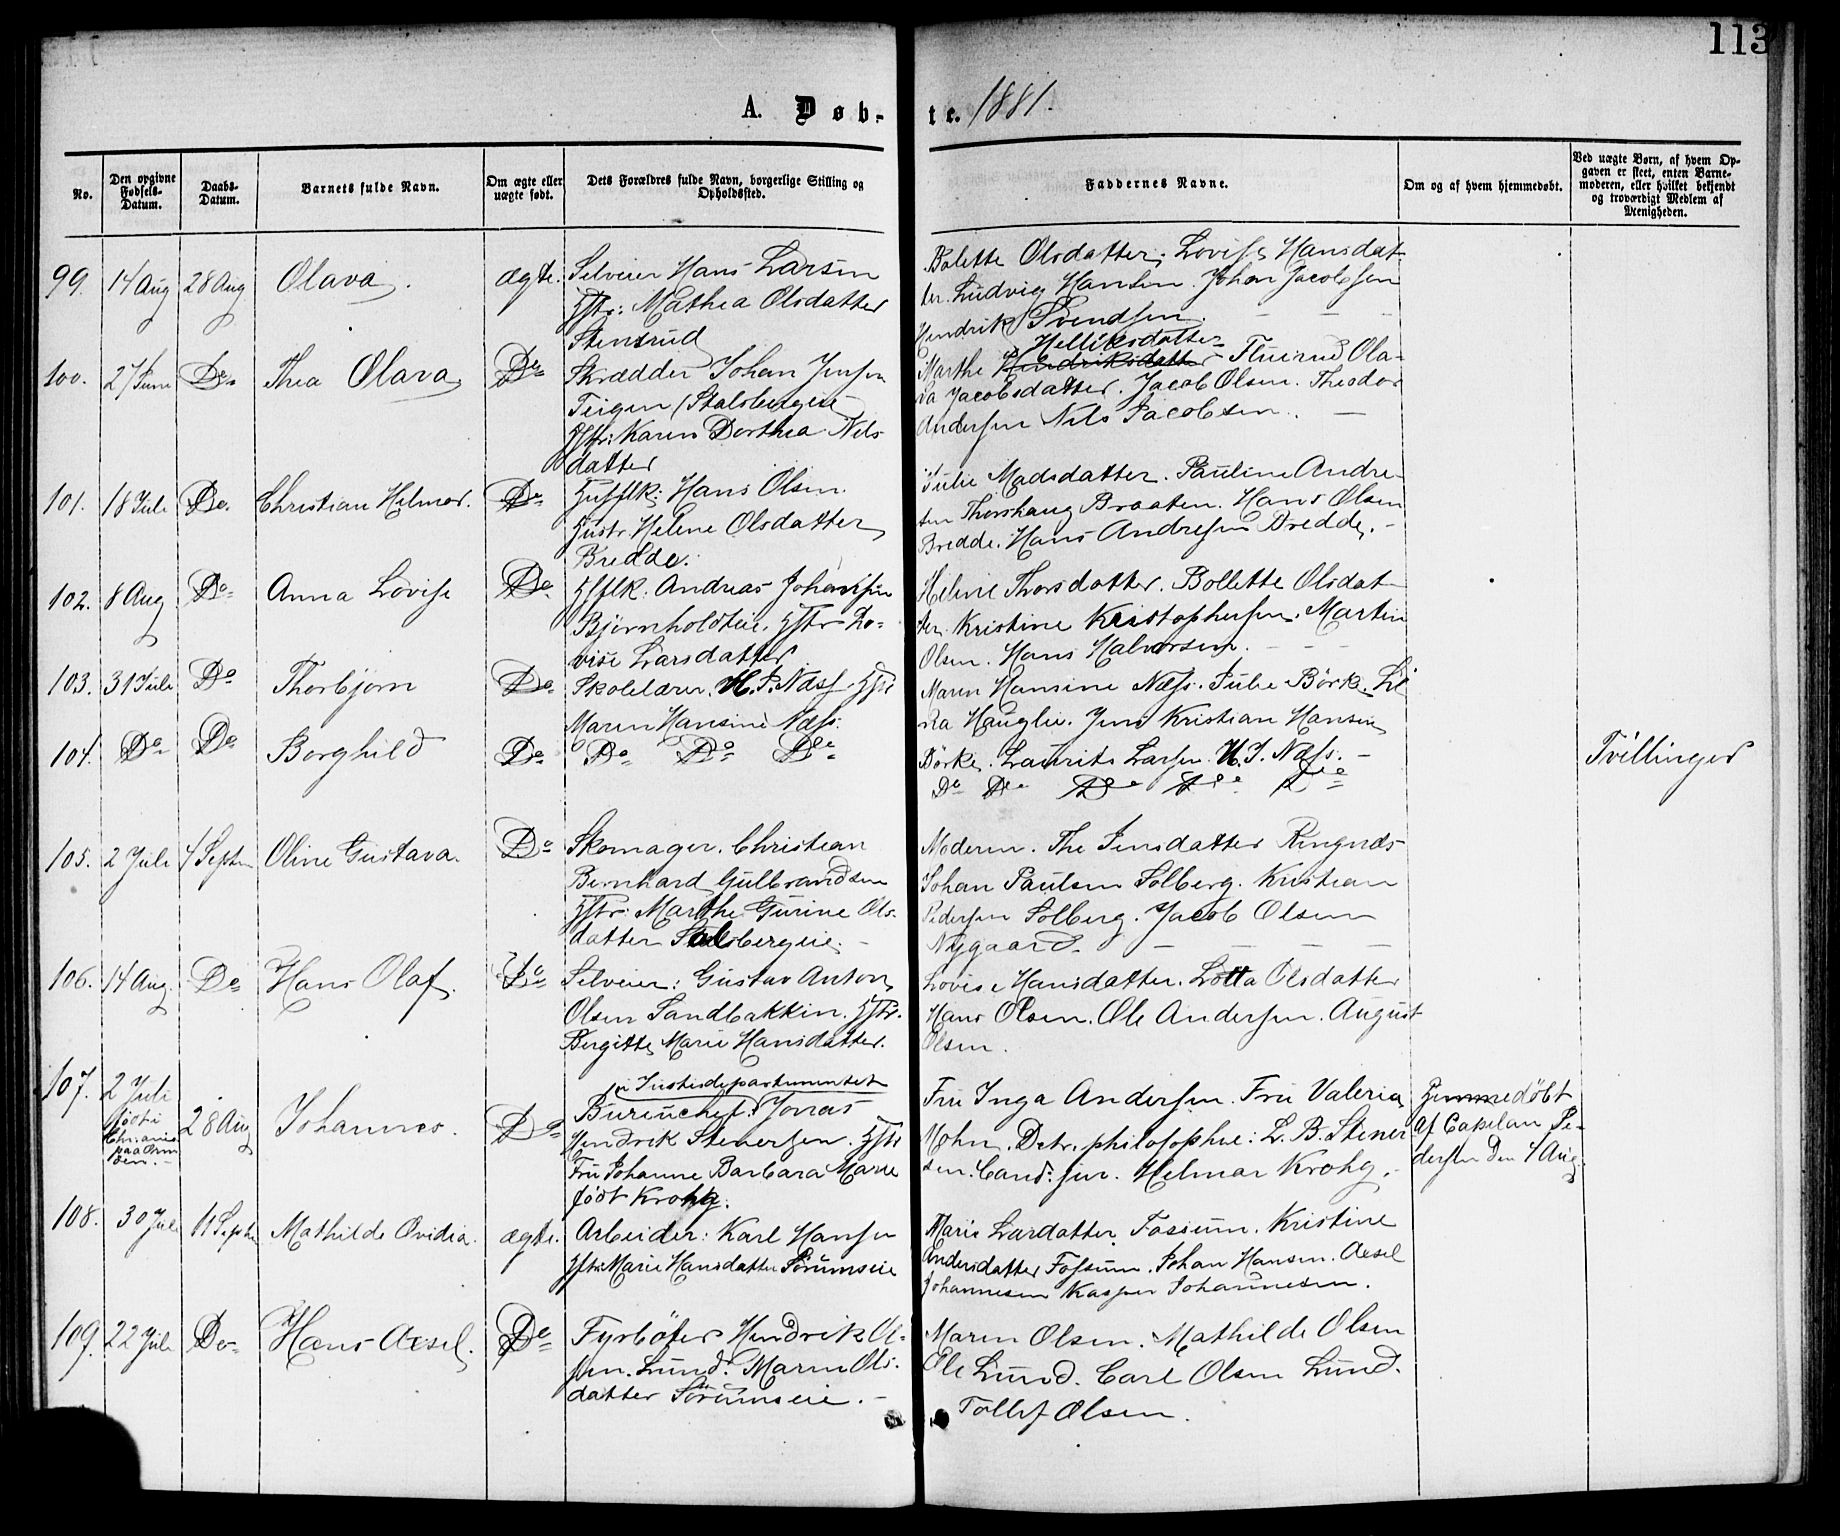 113
A. Døb-
te. 1881.
No.
Den opgivne Fødsels-Datum.
Daabs-Datum.
Barnets fulde Navn.
Om ægte eller uægte født.
Dets Forældres fulde Navn, borgerlige Stilling og Opholdssted.
Faddernes Navne.
Om og af hvem hjemmedøbt.
Ved uægte Børn, af hvem Op-
gaven er skeet, enten Barne-
moderen, eller hvilket bekjendt
og troværdigt Medlem af
Menigheden.
99. 14 Aug 28 Aug Olava. ægte.
Selveier Hans Larsen
Hstr: Mathea Olsdatter
Stensrud
Bolette Olsdatter. Lovise Hansdat-
ter. Ludvig Hansen. Johan Jacobsen
Hendrik Svendsen.
100. 27 Juni Do Thea Olava Do
Skrædder Johan Jensen
Teigen (Stalsbergeie
Hstr: Karen Dorthea Nils-
datter
Marthe Hendriksdatter Helliksdatter Fluirud Ola-
va Jacobsdatter. Jacob Olsen. Theodor
Andersen Nils Jacobsen.
101. 18 Juli Do. Christian Hilmar. Do
Husflk: Hans Olsen.
Hustr. Helene Olsdatter
Bredde.
Julie Madsdatter. Pauline Andre-
sen Thorshaug Braaten. Hans Olsen
Bredde. Hans Andresen Bredde.
102. 8 Aug Do Anna Lovise Do
Hsflk. Andreas Johansen
Bjørnholdteie. Hstr Lo-
vise Larsdatter
Heline Thorsdatter. Bollette Olsdat-
ter. Kristine Kristophersen. Martin
Olsen. Hans Halvorsen.
103. 31 Juli Do Thorbjørn Do
Skolelærer. H. J. Næss Hstr
Maren Hansine Næss.
Maren Hansine Næss. Julie Børke. Li-
na Hauglie. Jens Kristian Hansen
Børke. Laurits Larsen. H. J. Næss.
104. Do Do Borghild Do Do Do Do
Do Do Do Do Do
Tvillinger
105. 2 Juli 4 Septm Oline Gustava. Do
Skomager. Christian
Bernhard Gulbrandsen
Hstr: Marthe Gurine Ols-
datter Stalsbergeie.
Moderen. The Jensdatter Ringnæs
Johan Paulsen Solberg. Kristian
Pedersen Solberg. Jacob Olsen
Nygaard.
106. 14 Aug. Do Hans Olaf. Do
Selveier: Gustav Anton
Olsen Sandbakkin. Hstr.
Bergitte Marie Hansdatter.
Lovise Hansdatter. Lotta Olsdatter
Hans Olsen. Ole Andersen. August
Olsen.
107. 2 Juli
født i
Christiania
28 Aug Johannes. Do
i Justisdepartementet
Bureuchef: Jonas
Hendrik Stenersen. Hstr
Fru Johanne Barbara Marie
født Krohg.
Fru Inga Andersen. Fru Valeria
Mohn. Dctr. philosophie: L. B. Stener-
sen. Cand. jur. Helmar Krohg.
Hjemmedöbt
af Capelan Pe-
dersen Den 4 Aug.
108. 30 Juli 11 Septm Mathilde Ovidia. ægte.
Arbeider: Karl Hansen
Hstr: Marie Hansdatter Sörumseie
Marie Larsdatter Fossum. Kristine
Andersdatter Fossum. Johan Hansen. Axel
Johannesen Kasper Johannesen.
109. 22 Juli Do Hans Axel. Do
Fyrböter Hendrik Ol-
sen. Lund. Maren Ols-
datter Sörumseie.
Maren Olsen. Mathilde Olsen
Ole Lund. Carl Olsen Lund.
Tollef Olsen.